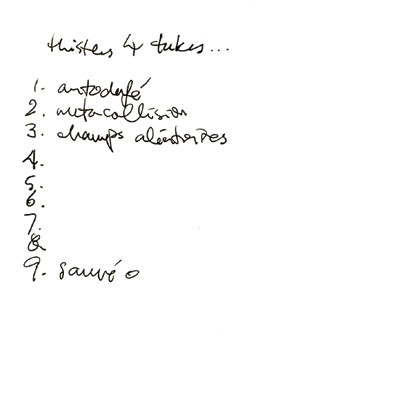 thirteen 4 takes...
1. autodafé
2. metacollision
3. champs aléatoires
4.
5.
6.
7.
8
9. sauvé o